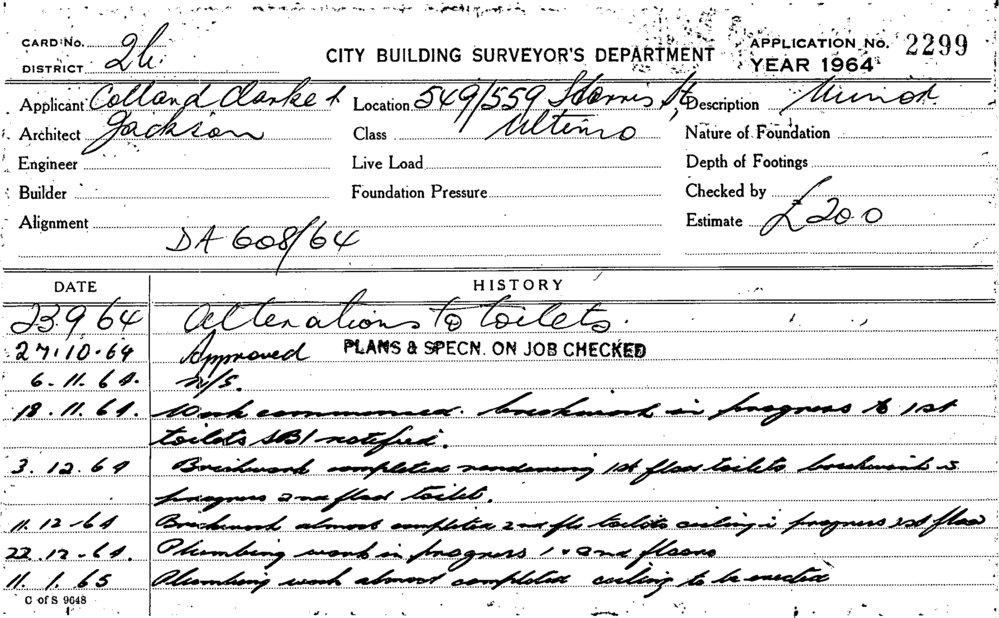 CARD No.
DISTRICT 2h
CITY BUILDING SURVEYOR'S DEPARTMENT
APPLICATION No. 2299
YEAR 1964
Applicant Colland Clarke &
Location 549/559 Harris St,
Description Minor
Architect Jackson
Class Ultimo
Nature of Foundation
Engineer
Live Load
Depth of Footings
Builder
Foundation Pressure
Checked by
Alignment
Estimate £200
DA 608/64
DATE HISTORY
23.9.64 Alterations to toilets.
27.10.64 Approved PLANS & SPECN. ON JOB CHECKED
6.11.64. N/S.
18.11.64. Work commenced. brickwork in progress to 1st
toilets SBI notified.
3.12.64 Brickwork completed rendering 1st floor toilets brickwork is
progress 2nd floor toilet.
11.12-64 Brickwork almost completed 2nd flr toilets ceiling i progress 1st floor
22.12-64. Plumbing work in progress 1 & 2nd floors
11.1.65 Plumbing work almost completed ceiling to be erected
C of S 9648